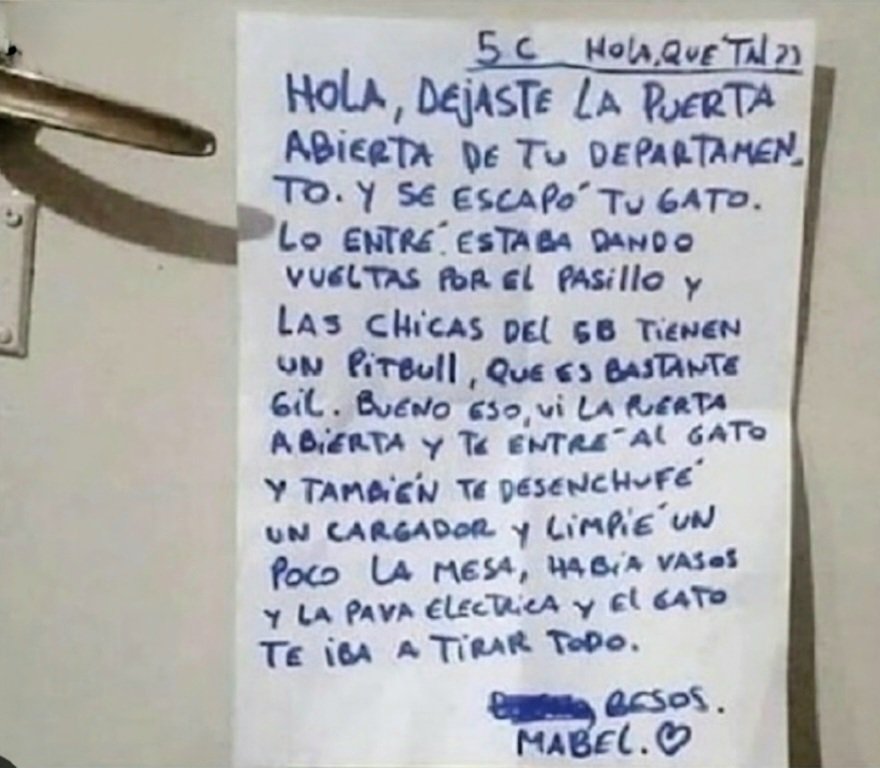 5C HOLA, QUE TAL??
HOLA, DEJASTE LA PUERTA
ABIERTA DE TU DEPARTAMEN-
TO. Y SE ESCAPÓ TU GATO.
LO ENTRÉ. ESTABA DANDO
VUELTAS POR EL PASILLO Y
LAS CHICAS DEL 5B TIENEN
UN PITBULL, QUE ES BASTANTE
GIL. BUENO ESO, VI LA PUERTA
ABIERTA Y TE ENTRÉ AL GATO
Y TAMBIÉN TE DESENCHUFÉ
UN CARGADOR Y LIMPIÉ UN
POCO LA MESA, HABÍA VASOS
Y LA PAVA ELECTRICA Y EL GATO
TE IBA A TIRAR TODO.
BESOS.
MABEL. ♡